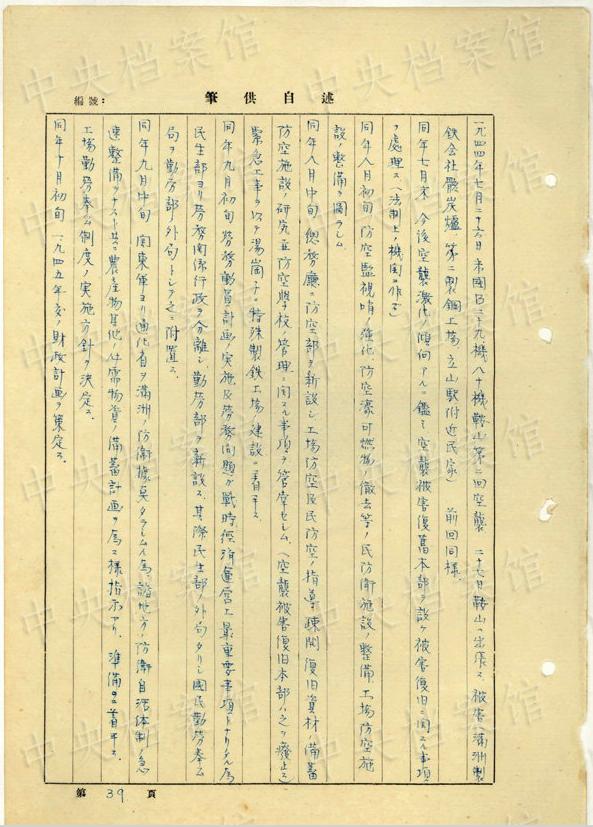 編號：
筆供自述
一九四四年七月二十六日 米國B二十九機八十機鞍山第二回空襲 二十七日鞍山ニ出張ス 被害(満洲製
鉄会社骸炭爐 第二製鋼工場 立山駅附近民家) 前回同様
同年七月末 今後空襲激化ノ傾向アルニ鑑ミ空襲被害復舊本部ヲ設ケ被害復旧ニ関スル事項
ヲ処理ス(法制上ノ機関ニ非ズ)
同年八月初旬 防空監視哨ノ強化、防空濠、可燃物ノ撤去等ノ民防衛施設ノ整備、工場防空施
設ノ整備ヲ圖ラシム
同年八月中旬 總務廳ニ防空部ヲ新設シ工場防空及民防空ノ指導、疎開、復旧資材ノ備蓄
防空施設ノ研究並防空學校ノ管理ニ関スル事項ヲ管掌セシム (空襲被害復旧本部ハ之ヲ廃止ス)
緊急工事ヲ以テ湯崗子ニ特殊製鉄工場ノ建設ニ着手ス
同年九月初旬 勞務動員計画ノ実施及勞務問題ガ戦時経済運営上最重要事項トナリタル為
民生部ヨリ勞務関係行政ヲ分離シ勤勞部ヲ新設ス 其際民生部ノ外局タリシ國民勤勞奉公
局ヲ勤勞部外局トシテ之ニ附置ス
同年九月中旬 関東軍ヨリ通化省ヲ満洲ノ防衛據点タラシムル為、諸地方ノ防衛自活体制ノ急
速整備ヲナスト共ニ農産物其他ノ必需物資ノ備蓄計画ヲ為ス様指示アリ、準備ニ着手ス
工場勤勞奉公制度ノ実施方針ヲ決定ス
同年十月初旬 一九四五年度ノ財政計画ヲ策定ス
第 39 頁
中央档案馆